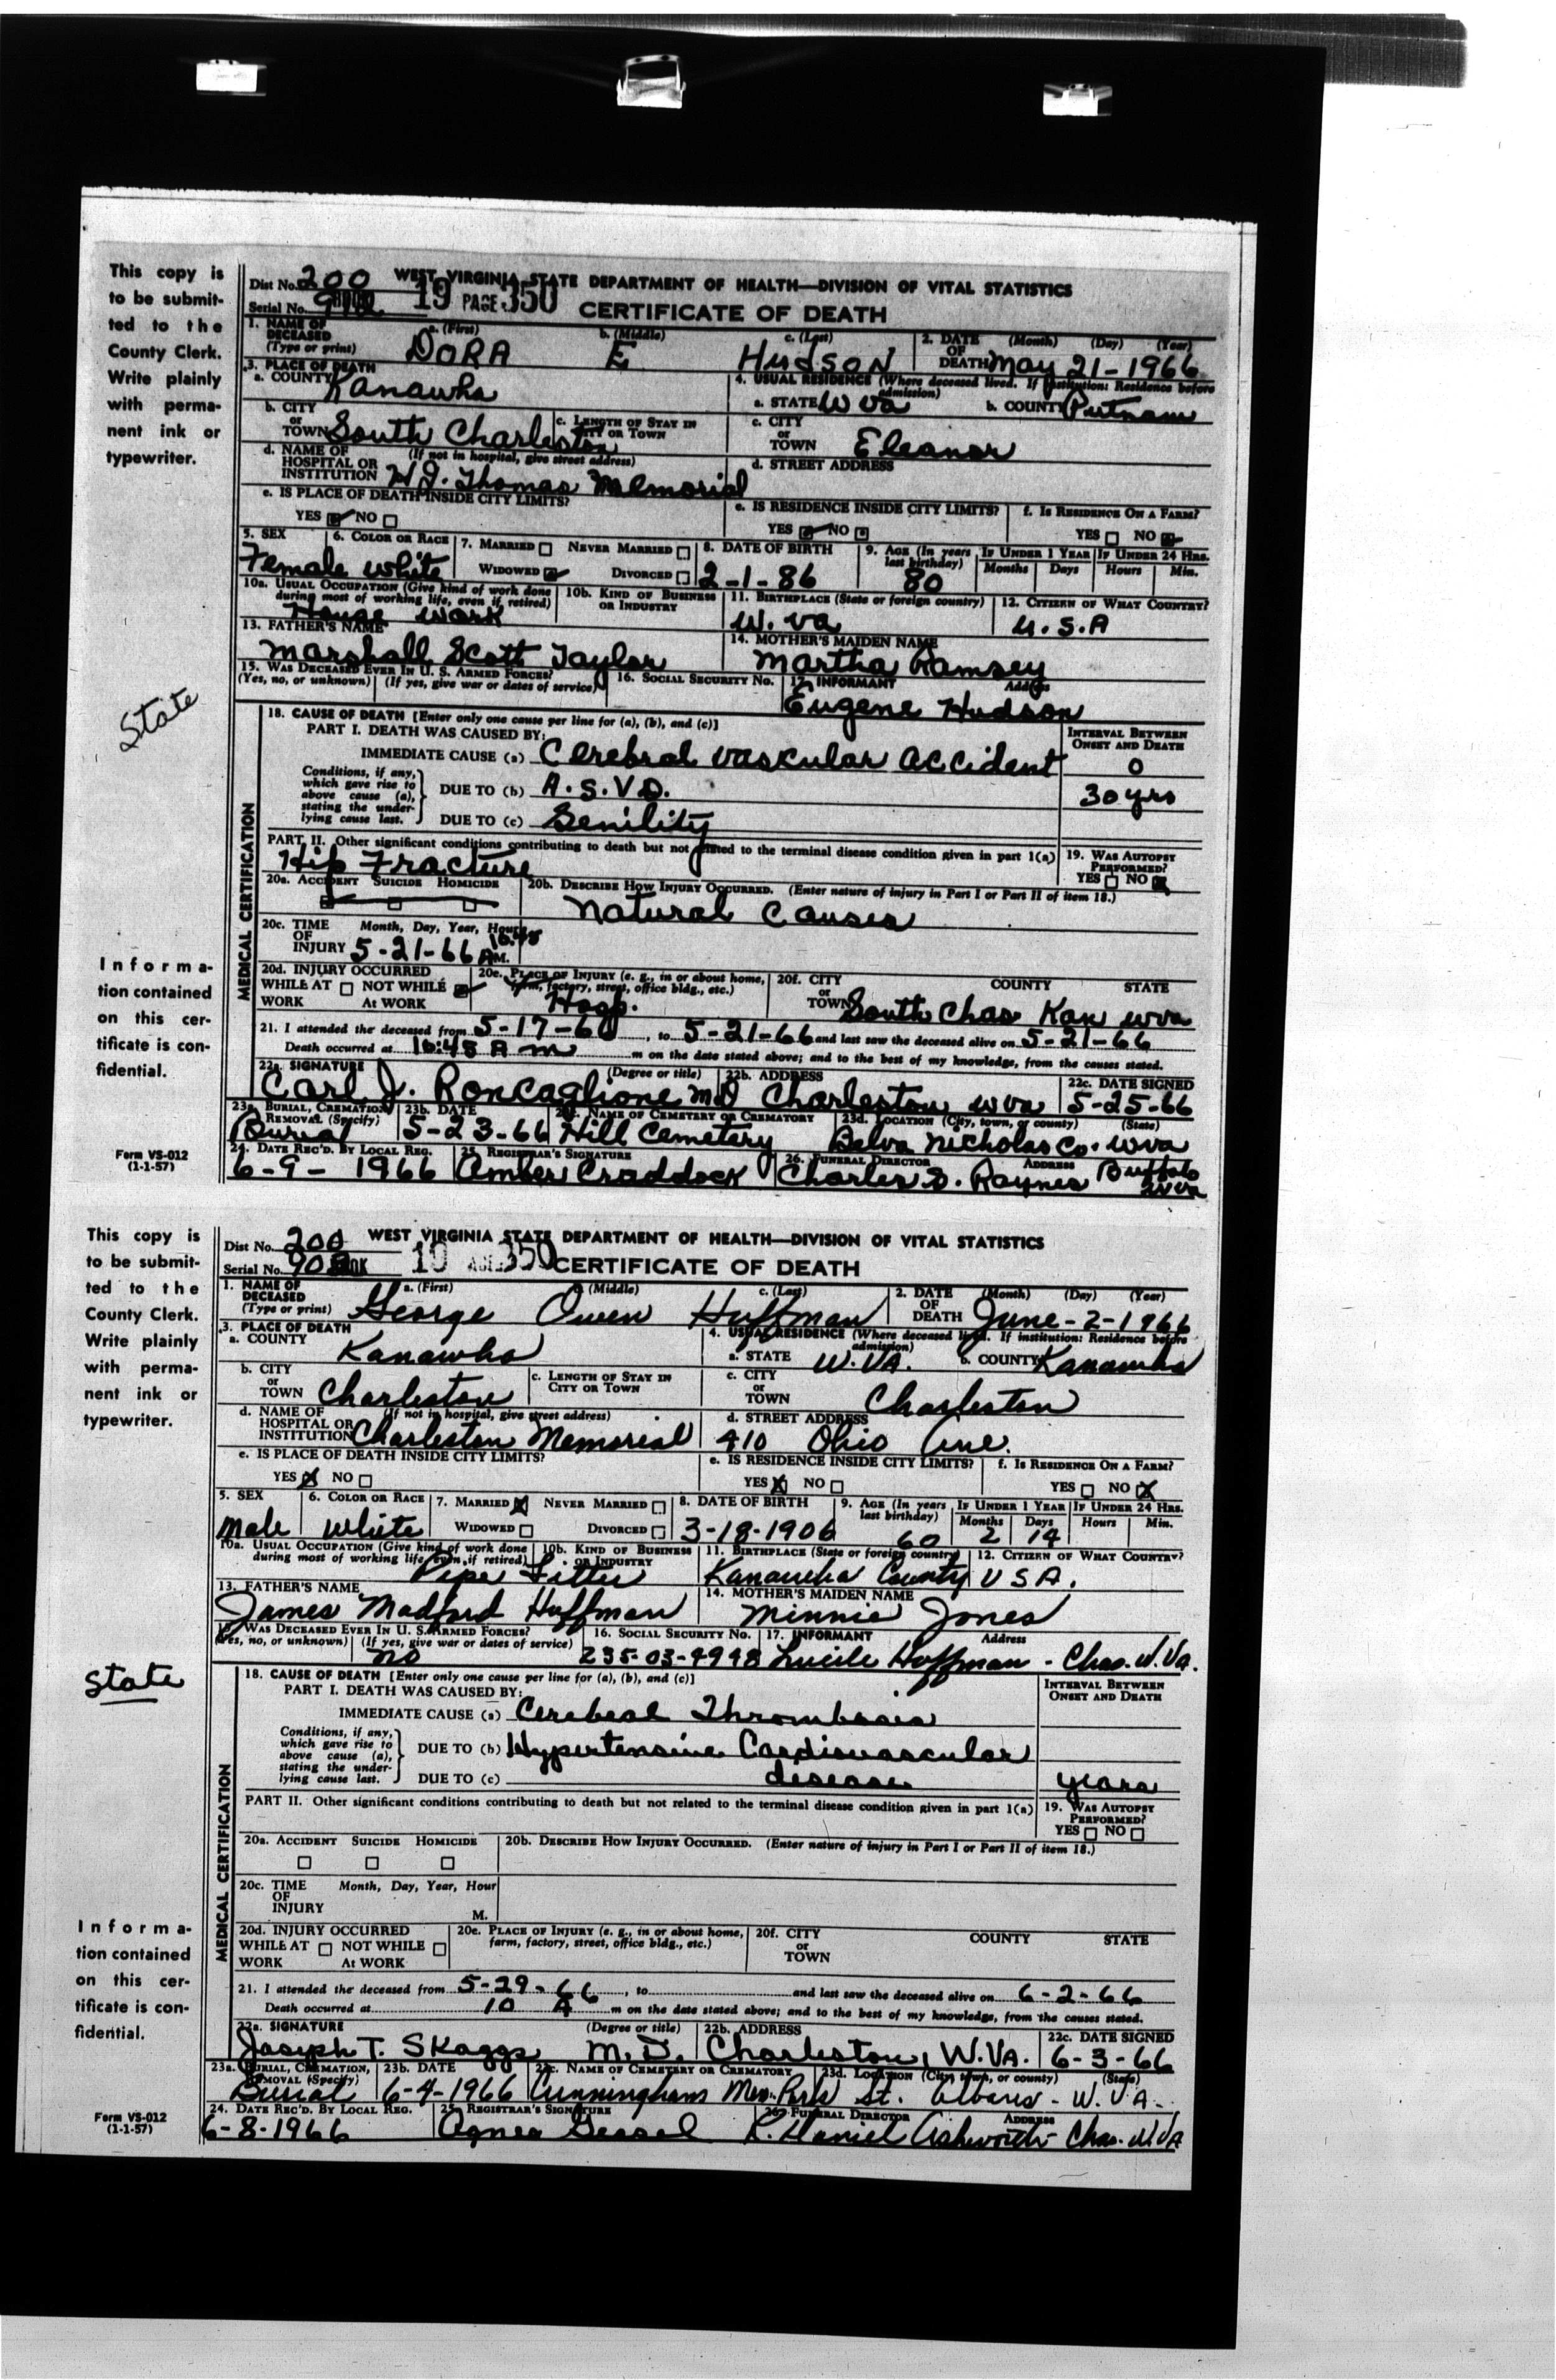 This copy is
to be submit-
ted to the
County Clerk.
Write plainly
with perma-
nent ink or
typewriter.
State
Informa-
tion contained
on this cer-
tificate is con-
fidential.
Form VS-012
(1-1-57)
Dist No. 200 WEST VIRGINIA STATE DEPARTMENT OF HEALTH—DIVISION OF VITAL STATISTICS
Serial No. 19 PAGE 350 CERTIFICATE OF DEATH
1. NAME OF DECEASED (Type or print) a. (First) DORA b. (Middle) E c. (Last) HUDSON 2. DATE OF DEATH (Month) (Day) (Year) May 21-1966
3. PLACE OF DEATH a. COUNTY Kanawha 4. USUAL RESIDENCE (Where deceased lived. If institution: Residence before admission) a. STATE W Va b. COUNTY Putnam
b. CITY or TOWN South Charleston c. LENGTH OF STAY IN CITY OR TOWN c. CITY or TOWN Eleanor
d. NAME OF HOSPITAL OR INSTITUTION (If not in hospital, give street address) H.J. Thomas Memorial d. STREET ADDRESS
e. IS PLACE OF DEATH INSIDE CITY LIMITS? YES NO e. IS RESIDENCE INSIDE CITY LIMITS? YES NO f. IS RESIDENCE ON A FARM? YES NO
5. SEX Female 6. COLOR OR RACE White 7. MARRIED NEVER MARRIED WIDOWED DIVORCED 8. DATE OF BIRTH 2-1-86 9. AGE (In years last birthday) 80 IF UNDER 1 YEAR Months Days IF UNDER 24 HRS. Hours Min.
10a. USUAL OCCUPATION (Give kind of work done during most of working life, even if retired) House Work 10b. KIND OF BUSINESS OR INDUSTRY 11. BIRTHPLACE (State or foreign country) W. Va 12. CITIZEN OF WHAT COUNTRY? U.S.A
13. FATHER'S NAME Marshall Scott Taylor 14. MOTHER'S MAIDEN NAME Martha Ramsey
15. WAS DECEASED EVER IN U. S. ARMED FORCES? (Yes, no, or unknown) (If yes, give war or dates of service) 16. SOCIAL SECURITY NO. 17. INFORMANT Address Eugene Hudson
MEDICAL CERTIFICATION
18. CAUSE OF DEATH [Enter only one cause per line for (a), (b), and (c)] INTERVAL BETWEEN ONSET AND DEATH
PART I. DEATH WAS CAUSED BY:
IMMEDIATE CAUSE (a) Cerebral vascular accident 0
Conditions, if any, which gave rise to above cause (a), stating the underlying cause last. DUE TO (b) A.S.V.D. 30 yrs
DUE TO (c) Senility
PART II. Other significant conditions contributing to death but not related to the terminal disease condition given in part 1(a) Hip Fracture 19. WAS AUTOPSY PERFORMED? YES NO
20a. ACCIDENT SUICIDE HOMICIDE 20b. DESCRIBE HOW INJURY OCCURRED. (Enter nature of injury in Part I or Part II of item 18.) Natural Causes
20c. TIME OF INJURY Month, Day, Year, Hour 5-21-66 10:48 A M.
20d. INJURY OCCURRED WHILE AT WORK NOT WHILE AT WORK 20e. PLACE OF INJURY (e. g., in or about home, farm, factory, street, office bldg., etc.) Hosp. 20f. CITY or TOWN COUNTY STATE South Chas Kan WVa
21. I attended the deceased from 5-17-66, to 5-21-66 and last saw the deceased alive on 5-21-66
Death occurred at 10:48 A m m on the date stated above; and to the best of my knowledge, from the causes stated.
22a. SIGNATURE (Degree or title) Carl J. Roncaglione MD 22b. ADDRESS Charleston WVa 22c. DATE SIGNED 5-25-66
23a. BURIAL, CREMATION, REMOVAL (Specify) Burial 23b. DATE 5-23-66 23c. NAME OF CEMETERY OR CREMATORY Hill Cemetery 23d. LOCATION (City, town, or county) (State) Belva Nicholas Co. WVa
24. DATE REC'D. BY LOCAL REG. 6-9-1966 25. REGISTRAR'S SIGNATURE Amber Craddock 26. FUNERAL DIRECTOR ADDRESS Charles S. Raynes Buffalo WVa
This copy is
to be submit-
ted to the
County Clerk.
Write plainly
with perma-
nent ink or
typewriter.
State
Informa-
tion contained
on this cer-
tificate is con-
fidential.
Form VS-012
(1-1-57)
Dist No. 200 WEST VIRGINIA STATE DEPARTMENT OF HEALTH—DIVISION OF VITAL STATISTICS
Serial No. 19 350 CERTIFICATE OF DEATH
1. NAME OF DECEASED (Type or print) a. (First) George (Middle) Owen c. (Last) Huffman 2. DATE OF DEATH (Month) (Day) (Year) June-2-1966
3. PLACE OF DEATH a. COUNTY Kanawha 4. USUAL RESIDENCE (Where deceased lived. If institution: Residence before admission) a. STATE W.VA. b. COUNTY Kanawha
b. CITY or TOWN Charleston c. LENGTH OF STAY IN CITY OR TOWN c. CITY or TOWN Charleston
d. NAME OF HOSPITAL OR INSTITUTION (If not in hospital, give street address) Charleston Memorial d. STREET ADDRESS 410 Ohio Ave.
e. IS PLACE OF DEATH INSIDE CITY LIMITS? YES X NO e. IS RESIDENCE INSIDE CITY LIMITS? YES X NO f. IS RESIDENCE ON A FARM? YES NO X
5. SEX Male 6. COLOR OR RACE White 7. MARRIED X NEVER MARRIED WIDOWED DIVORCED 8. DATE OF BIRTH 3-18-1906 9. AGE (In years last birthday) 60 IF UNDER 1 YEAR Months 2 Days 14 IF UNDER 24 HRS. Hours Min.
10a. USUAL OCCUPATION (Give kind of work done during most of working life, even if retired) Pipe Fitter 10b. KIND OF BUSINESS OR INDUSTRY 11. BIRTHPLACE (State or foreign country) Kanawha County 12. CITIZEN OF WHAT COUNTRY? USA.
13. FATHER'S NAME James Madford Huffman 14. MOTHER'S MAIDEN NAME Minnie Jones
15. WAS DECEASED EVER IN U. S. ARMED FORCES? (Yes, no, or unknown) (If yes, give war or dates of service) no 16. SOCIAL SECURITY NO. 235-03-4948 17. INFORMANT Address Lucile Huffman - Chas. W. Va.
MEDICAL CERTIFICATION
18. CAUSE OF DEATH [Enter only one cause per line for (a), (b), and (c)] INTERVAL BETWEEN ONSET AND DEATH
PART I. DEATH WAS CAUSED BY:
IMMEDIATE CAUSE (a) Cerebral Thrombosis
Conditions, if any, which gave rise to above cause (a), stating the underlying cause last. DUE TO (b) Hypertensive Cardiovascular
DUE TO (c) disease years
PART II. Other significant conditions contributing to death but not related to the terminal disease condition given in part 1(a) 19. WAS AUTOPSY PERFORMED? YES NO
20a. ACCIDENT SUICIDE HOMICIDE 20b. DESCRIBE HOW INJURY OCCURRED. (Enter nature of injury in Part I or Part II of item 18.)
20c. TIME OF INJURY Month, Day, Year, Hour M.
20d. INJURY OCCURRED WHILE AT WORK NOT WHILE AT WORK 20e. PLACE OF INJURY (e. g., in or about home, farm, factory, street, office bldg., etc.) 20f. CITY or TOWN COUNTY STATE
21. I attended the deceased from 5-29-66, to and last saw the deceased alive on 6-2-66
Death occurred at 10 A m on the date stated above; and to the best of my knowledge, from the causes stated.
22a. SIGNATURE (Degree or title) Joseph T. Skaggs M.D. 22b. ADDRESS Charleston, W.VA. 22c. DATE SIGNED 6-3-66
23a. BURIAL, CREMATION, REMOVAL (Specify) Burial 23b. DATE 6-4-1966 23c. NAME OF CEMETERY OR CREMATORY Cunningham Mem. Park 23d. LOCATION (City, town, or county) (State) St. Albans - W.VA.
24. DATE REC'D. BY LOCAL REG. 6-8-1966 25. REGISTRAR'S SIGNATURE Agnes 26. FUNERAL DIRECTOR ADDRESS K. Daniel Ashworth Chas. W.VA